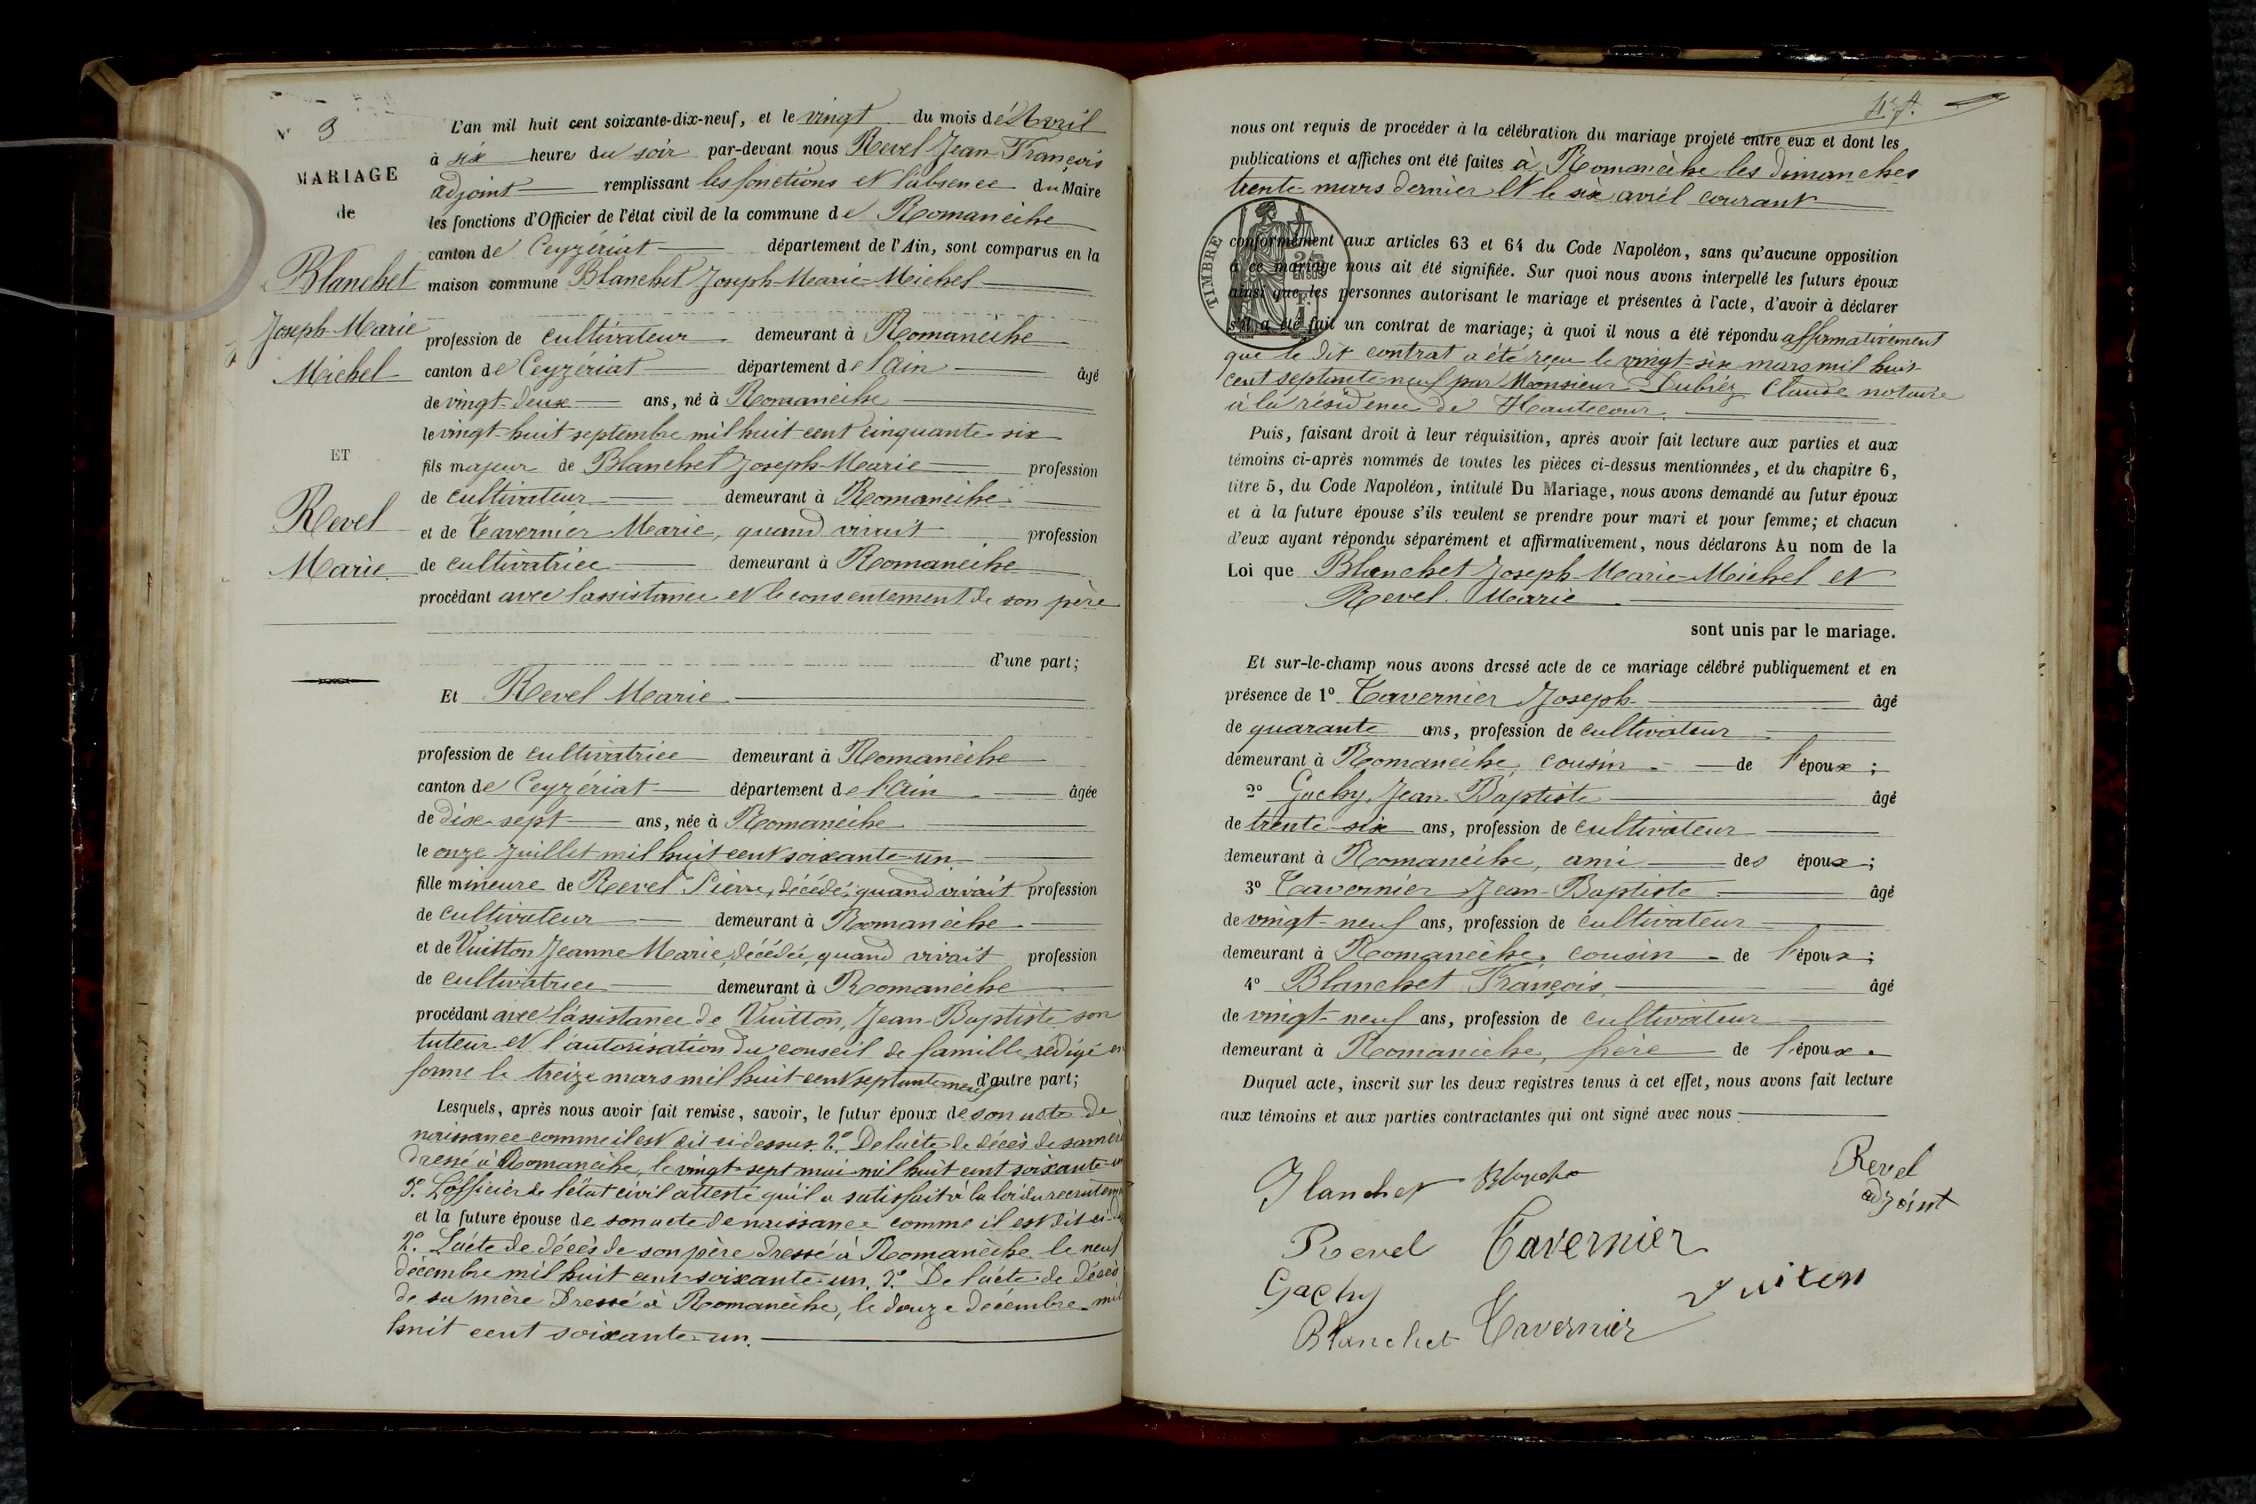 N° 3
MARIAGE
de
Blanchet
Joseph-Marie
Michel
ET
Revel
Marie
L'an mil huit cent soixante-dix-neuf, et le vingt du mois d'Avril
à six heure du soir par-devant nous Revel Jean François
adjoint remplissant les fonctions et l'absence du Maire
les fonctions d'Officier de l'état civil de la commune de Romanèche
canton de Ceyzériat département de l'Ain, sont comparus en la
maison commune Blanchet Joseph-Marie-Michel
profession de cultivateur demeurant à Romanèche
canton de Ceyzériat département de l'Ain âgé
de vingt-deux ans, né à Romanèche
le vingt-huit septembre mil huit cent cinquante-six
fils majeur de Blanchet Joseph-Marie profession
de cultivateur demeurant à Romanèche
et de Tavernier Marie, quand vivait profession
de cultivatrice demeurant à Romanèche
procédant avec l'assistance et le consentement de son père
d'une part;
Et Revel Marie
profession de cultivatrice demeurant à Romanèche
canton de Ceyzériat département de l'Ain âgée
de dix-sept ans, née à Romanèche
le onze juillet mil huit cent soixante-un
fille mineure de Revel Pierre, décédé, quand vivait profession
de cultivateur demeurant à Romanèche
et de Vuitton Jeanne Marie, décédée, quand vivait profession
de cultivatrice demeurant à Romanèche
procédant avec l'assistance de Vuitton, Jean-Baptiste son
tuteur et l'autorisation du conseil de famille, rédigé en
forme le treize mars mil huit cent septante neuf d'autre part;
Lesquels, après nous avoir fait remise, savoir, le futur époux de son acte de
naissance comme il est dit ci dessus. 2° De l'acte de décès de sa mère
dressé à Romanèche, le vingt-sept mai mil huit cent soixante-un
3° L'officier de l'état civil atteste qu'il a satisfait à la loi du recrutement
et la future épouse de son acte de naissance comme il est dit ci-
2° L'acte de décès de son père dressé à Romanèche le neuf
décembre mil huit cent soixante-un. 3° De l'acte de décès
de sa mère Dressé à Romanèche, le douze décembre mil
huit cent soixante-un.
nous ont requis de procéder à la célébration du mariage projeté entre eux et dont les
publications et affiches ont été faites à Romanèche les dimanches
trente-mars dernier et le six avril courant
TIMBRE
conformément aux articles 63 et 64 du Code Napoléon, sans qu'aucune opposition
à ce mariage nous ait été signifiée. Sur quoi nous avons interpellé les futurs époux
ainsi que les personnes autorisant le mariage et présentes à l'acte, d'avoir à déclarer
s'il a été fait un contrat de mariage; à quoi il nous a été répondu affirmativement
que le dit contrat a été reçu le vingt-six mars mil huit
cent septante-neuf par Monsieur Claude notaire
à la résidence de Hautecour.
Puis, faisant droit à leur réquisition, après avoir fait lecture aux parties et aux
témoins ci-après nommés de toutes les pièces ci-dessus mentionnées, et du chapitre 6,
titre 5, du Code Napoléon, intitulé Du Mariage, nous avons demandé au futur époux
et à la future épouse s'ils veulent se prendre pour mari et pour femme; et chacun
d'eux ayant répondu séparément et affirmativement, nous déclarons Au nom de la
Loi que Blanchet Joseph-Marie-Michel et
Revel Marie
sont unis par le mariage.
Et sur-le-champ nous avons dressé acte de ce mariage célébré publiquement et en
présence de 1° Tavernier Joseph âgé
de quarante ans, profession de cultivateur
demeurant à Romanèche, cousin de l'époux;
2° Gachy Jean-Baptiste âgé
de trente-six ans, profession de cultivateur
demeurant à Romanèche, ami des époux;
3° Tavernier Jean-Baptiste âgé
de vingt-neuf ans, profession de cultivateur
demeurant à Romanèche, cousin de l'époux;
4° Blanchet François âgé
de vingt-neuf ans, profession de cultivateur
demeurant à Romanèche, frère de l'époux.
Duquel acte, inscrit sur les deux registres tenus à cet effet, nous avons fait lecture
aux témoins et aux parties contractantes qui ont signé avec nous
Blanchet
Revel
adjoint
Revel Tavernier
Gachy Vuiton
Blanchet Tavernier